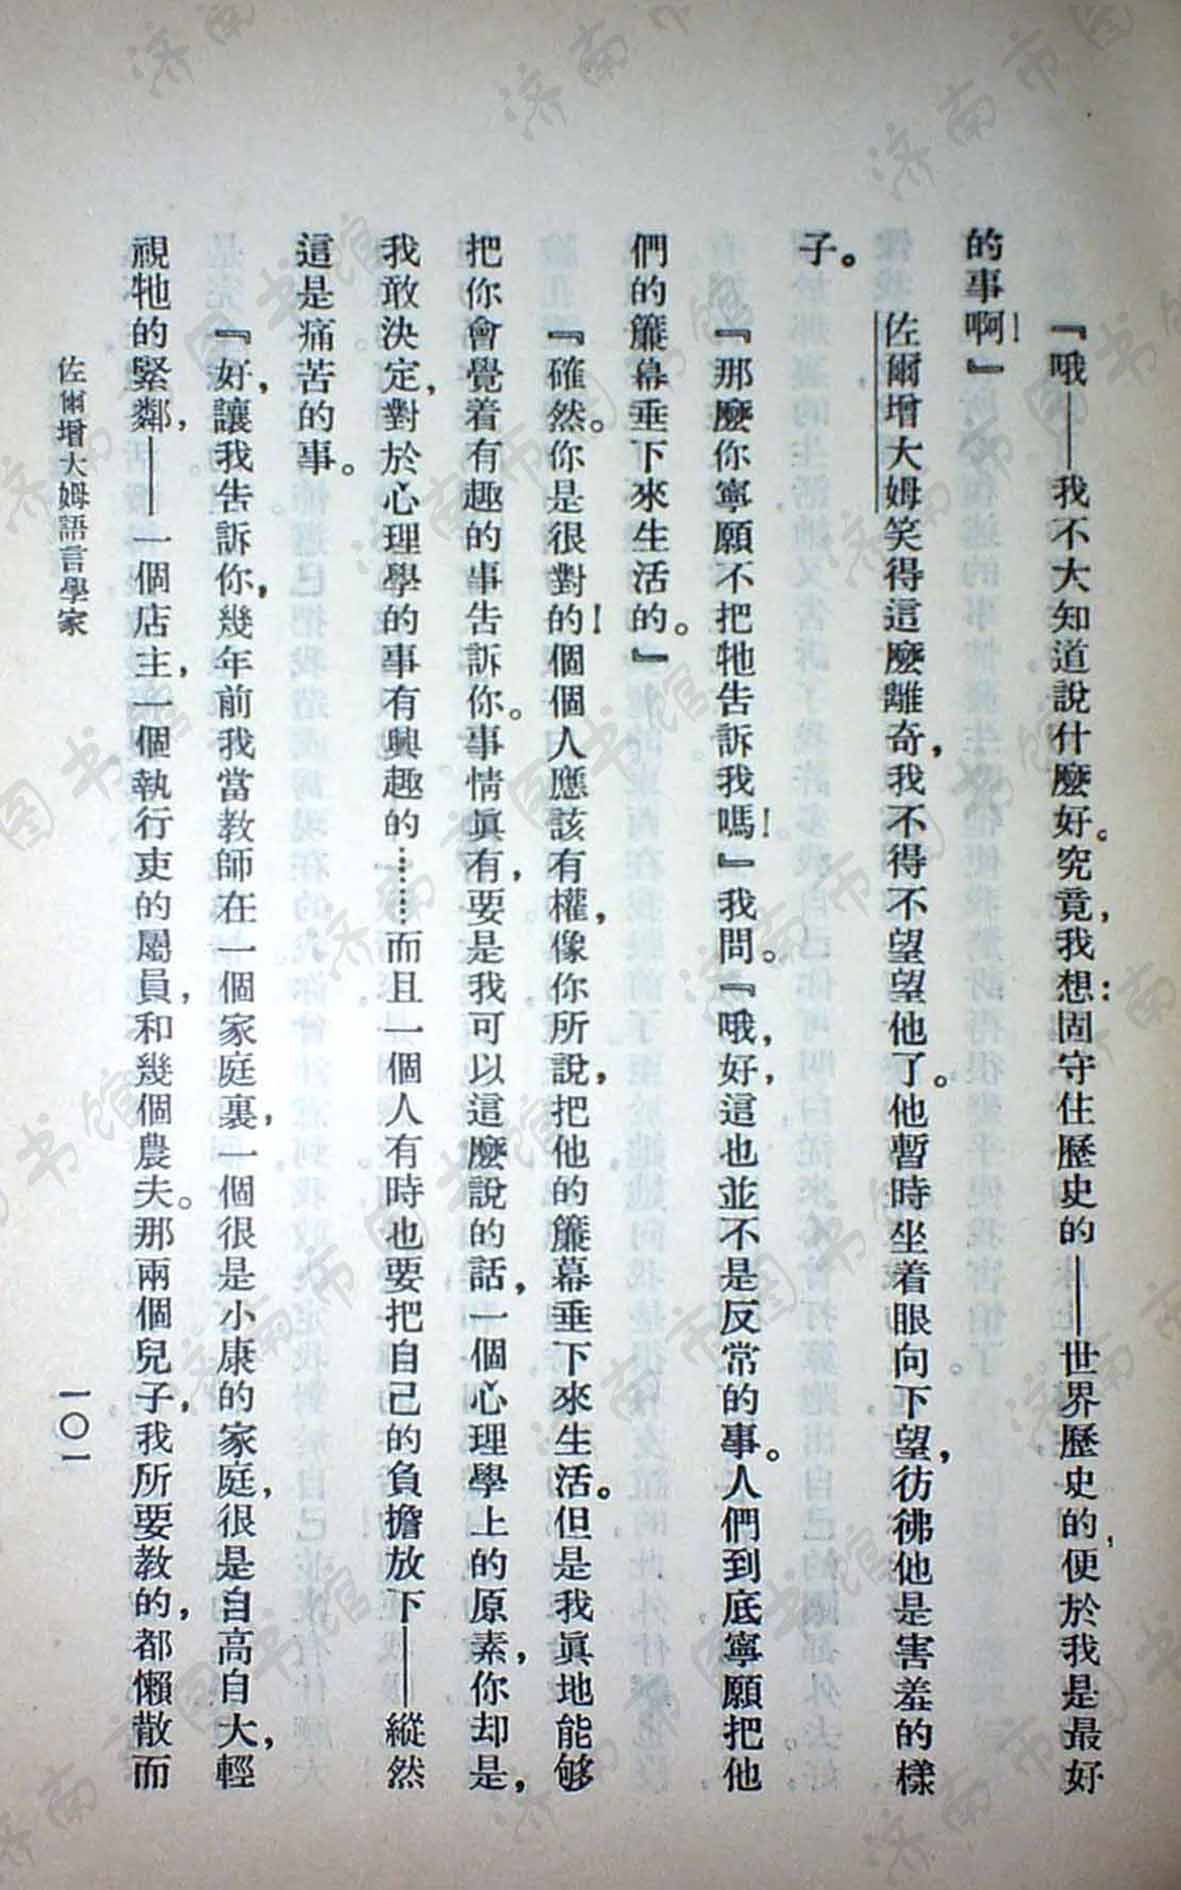 『哦——我不大知道說什麼好。究竟，我想：固守住歷史的——世界歷史的，便於我是最好
的事啊！』
佐爾增大姆笑得這麼離奇，我不得不望望他了。他暫時坐着眼向下望，彷彿他是害羞的樣
子。
『那麼你寧願不把牠告訴我嗎！』我問。『哦，好，這也並不是反常的事。人們到底寧願把他
們的簾幕垂下來生活的。』
『確然。你是很對的！個個人應該有權，像你所說，把他的簾幕垂下來生活。但是我眞地能够
把你會覺着有趣的事告訴你。事情眞有，要是我可以這麼說的話，一個心理學上的原素，你却是，
我敢決定，對於心理學的事有興趣的………而且一個人有時也要把自己的負擔放下——縱然
這是痛苦的事。
『好，讓我告訴你，幾年前我當教師在一個家庭裏，一個很是小康的家庭，很是自高自大，輕
視牠的緊鄰，——一個店主，一個執行吏的屬員，和幾個農夫。那兩個兒子，我所要教的，都懶散而
佐爾增大姆語言學家
一〇一
济南市图书馆